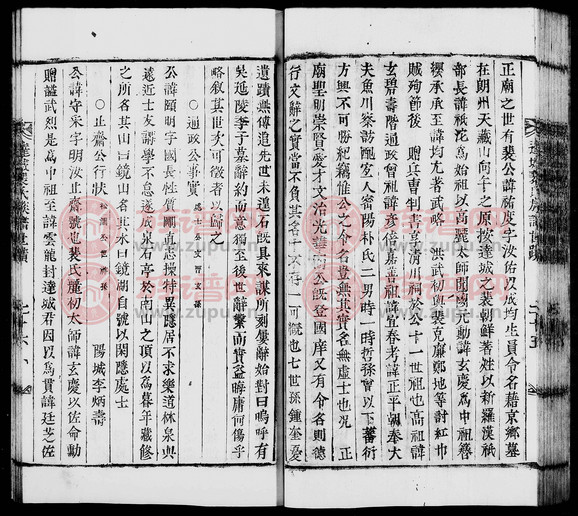 正廟之世有裴公諱祐度字汝佑以成均生員令名藉京鄉墓
在朔州天藏山向午之原按達城之裴朝鮮著姓以新羅漢祇
部長諱祇沱為始祖以高麗太師開國元勳諱玄慶為中祖簪
纓承承至諱均尤著武略 洪武初與裴克廉鄭地等討紅巾
賊殉節後 贈兵曹判書享清川祠於公十一世祖也高祖諱
玄碧壽階通政曾祖諱彥倍嘉善祖諱宜春考諱正平朝奉大
夫魚川察訪配室人密陽朴氏二男時一時哲孫曾以下蕃衍
方興不可勝紀竊惟公之令名豈無其實名無虛士也況 正
廟聖明崇賢愛才文治光
既登國庠又有令名則德
行文辭之實當不負其名
可慨也七世孫鍾奎憂
遺蹟無傳追先世未遑石既具來謀所刻屢辭始對曰嗚呼有
吳延陵季子墓辭約而意獨至後世辭繁而實益晦庸何傷乎
略敘其世次可徵者以歸之
○通政公事實 處士
公諱頤明字國長性質剛直志操特異隱居不求樂道林泉與
遠近士友講學不怠遂成泉石亭於南山之頂以為暮年藏修
之所名其山曰鏡山名其水曰鏡湖自號以閑隱處士
○止齋公行狀 陽城李炳壽
公諱守采字明汝止齋號也裴氏麗初太師諱玄慶以佐命勳
贈諡武烈是為中祖至諱雲龍封達城君因以為貫諱廷芝佐